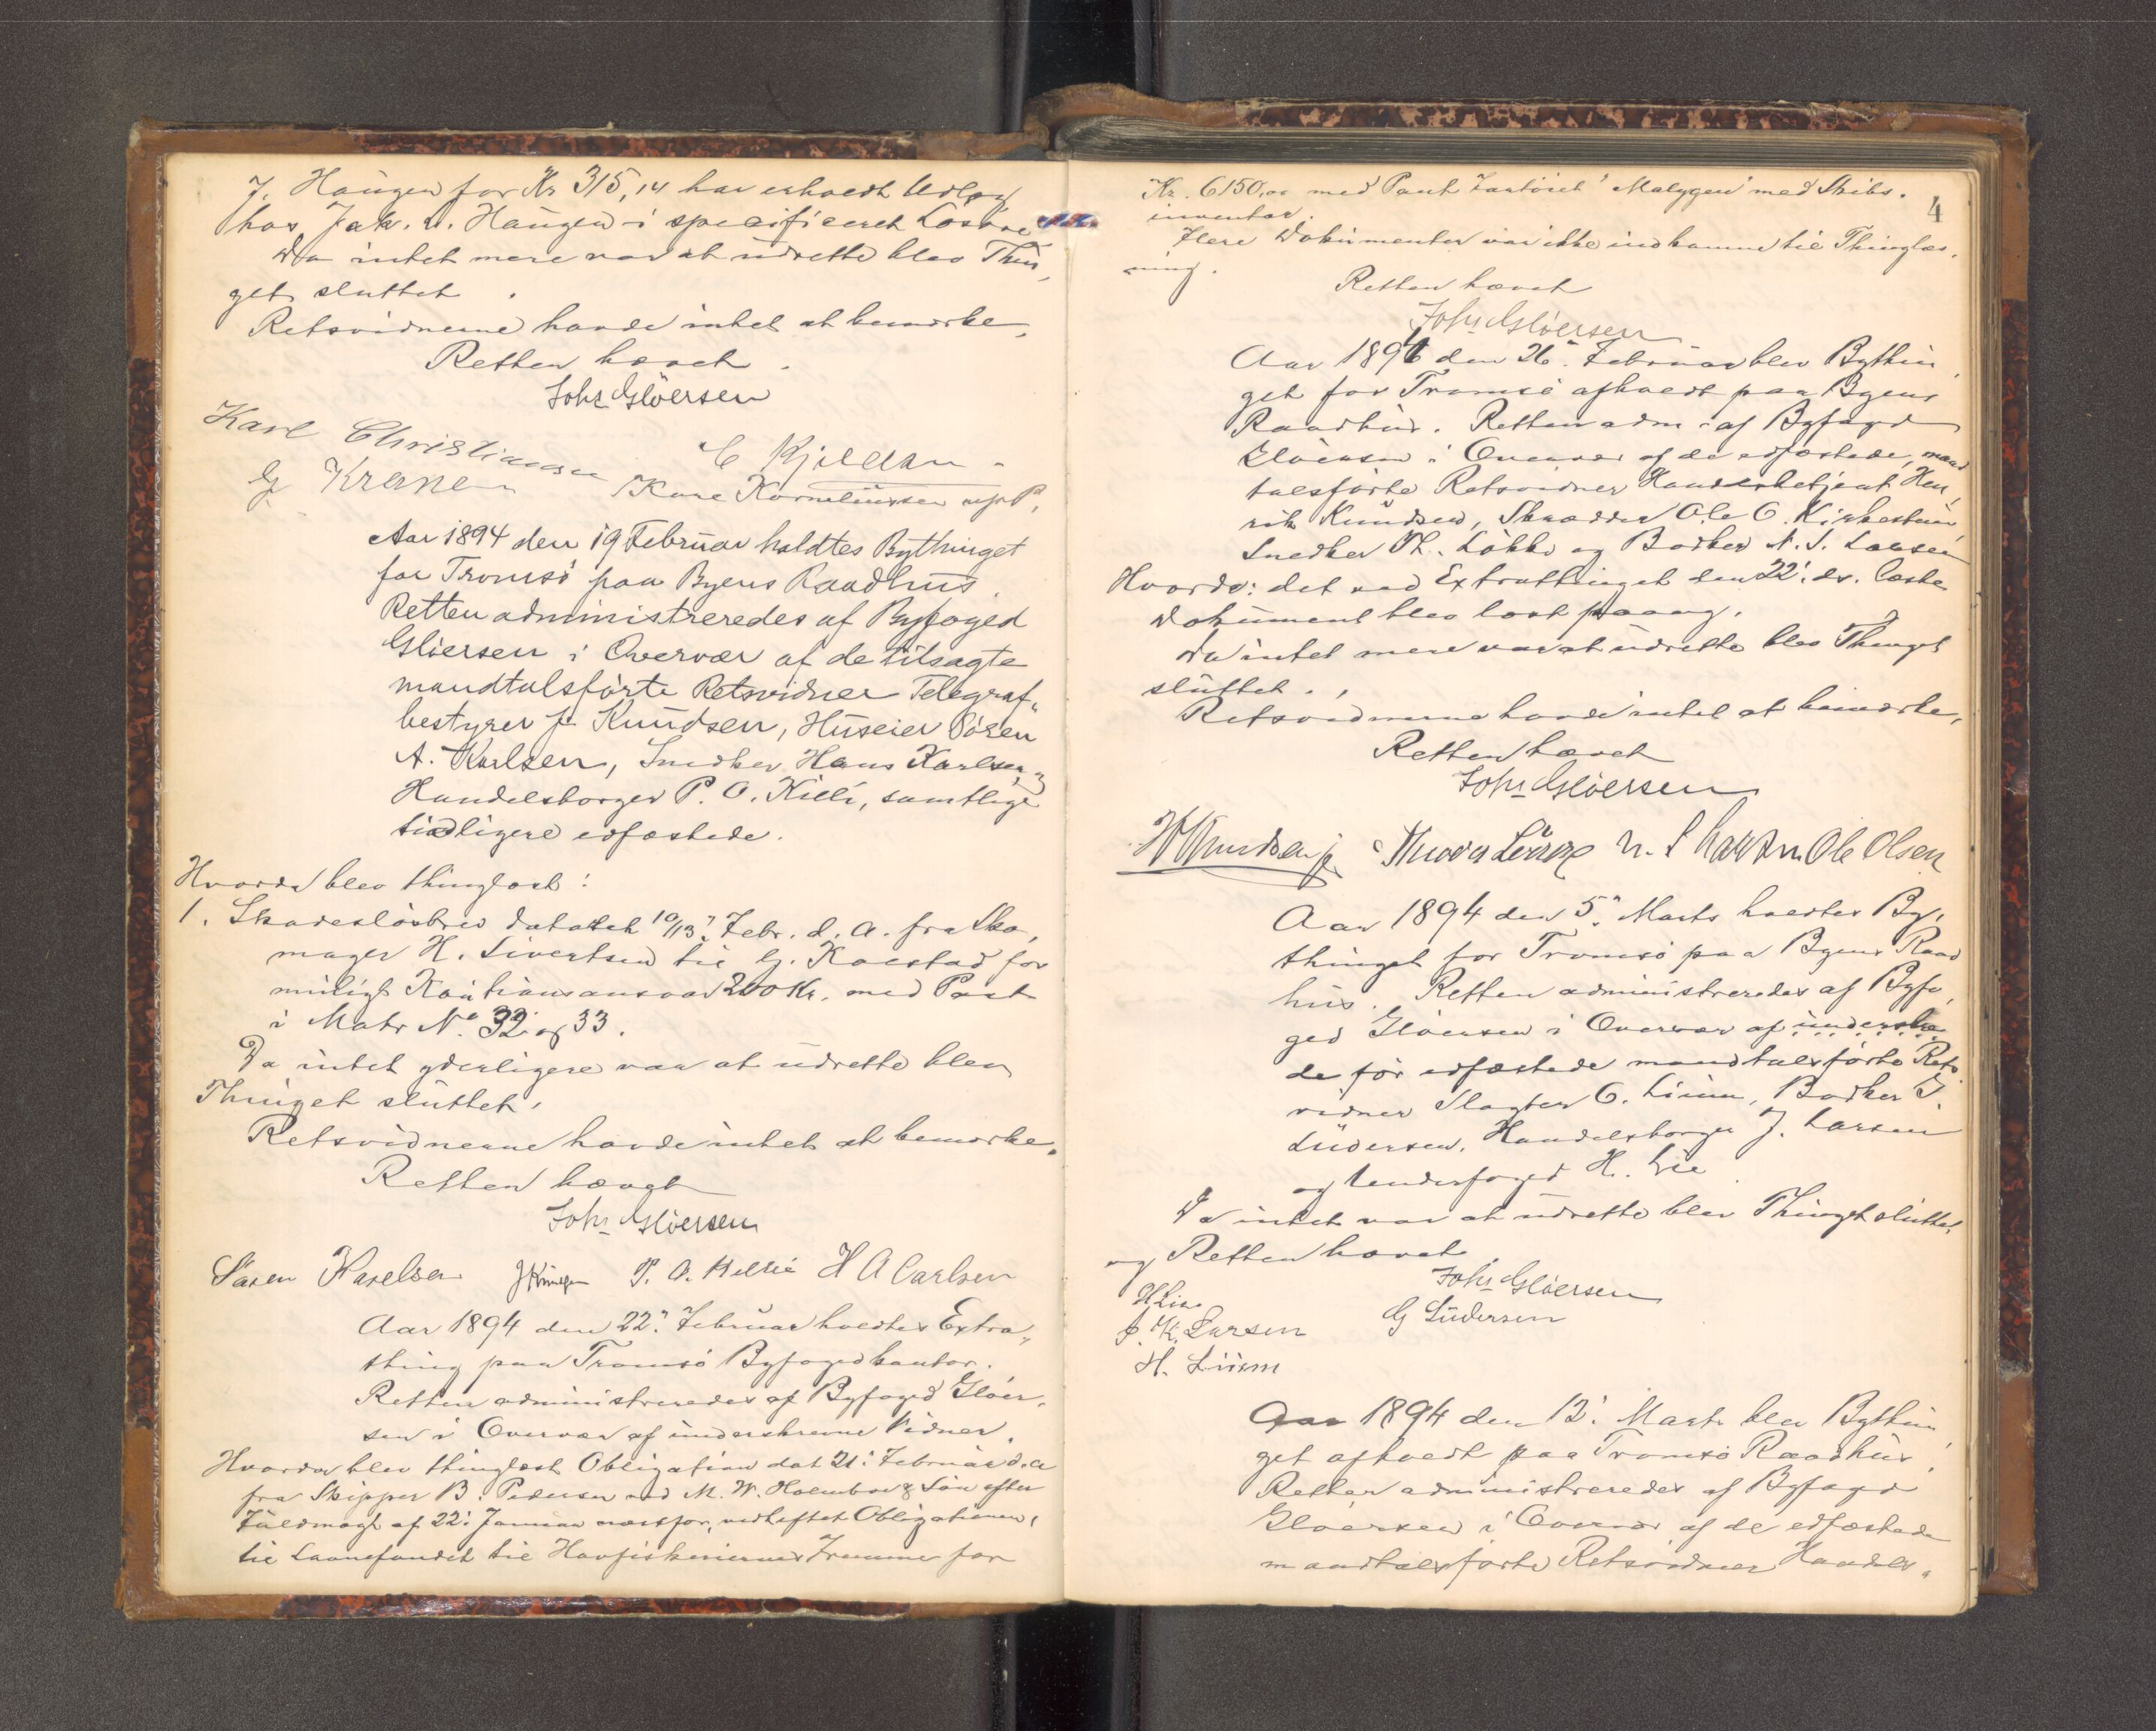 J. Haugen for Kr 315,14 har erholdt Udlæg
hos Jak. L. Haugen i specificeret Løsøre
Da intet mere var at udrette blev Thin,
get sluttet.
Retsvidnerne havde intet at bemærke,
Retten hævet.
Johs Gløersen
Karl Christiansen C Kjeldsen
G Krane Kare Korneliussen
Aar 1894 den 19 Februar holdtes Bythinget
for Tromsø paa Byens Raadhus.
Retten administreredes af Byfoged
Gløersen i Overvær af de tilsagte
mandtalsførte Retsvidner Telegraf„
bestyrer J. Knudsen, Huseier Sören
A. Karlsen, Snedker Hans Karlsen,
Handelsborger P. O. Killi, samtlige
tidligere edfæstede.
Hvorda blev thinglæst:
1. Skadesløsbrev datatet 10/13' Febr. d. A. fra Sko,
mager H. Sivertsen til G. Kaestad for
muligt Kautionsansvar 200 Kr. med Pant
i Matr No. 32 og 33.
Da intet yderligere var at udrette blev
Thinget sluttet,
Retsvidnerne havde intet at bemærke.
Retten hævet
Johs Gløersen
Søren Karelsen P. O. Killie H A Carlsen
Aar 1894 den 22' Februar holdtes Extra,
thing paa Tromsø Byfogedkontor.
Retten administreredes af Byfoged Gløer,
sen i Overvær af underskrevne Vidner.
Hvorda blev thinglæst Obligation dat 21' Februar d. A
fra Skipper B. Pedersen ved M. W. Holmboe & Søn efter
Fuldmagt af 22' Januar næstfor, vedheftet Obligationen,
til Laanefondet til Havfiskeriernes Fremme for
4
Kr. 6150,00 med Pant Fartøiet "Malygen" med Skibs.
inventar.
Flere Dokumenter var ikke indkomne til Thinglæs,
ning.
Retten hævet
Johs Gløersen
Aar 1894 den 26' Februar blev Bythin,
get for Tromsø afholdt paa Byens
Raadhus. Retten adm. af Byfoged
Gløersen i Overvær af de edfæstede, mand
talsførte Retsvidner Handelsbetjent Hen,
rik Knudsen, Skrædder Ole O. Kirkesteen,
Snedker Th. Løkke og Bødker N. S. Larsen
Hvorda: det ved Extrathinget den 22' ds. læste
Dokument blev læst paany.
Da intet mere var at udrette blev Thinget
sluttet.
Retsvidnerne havde intet at bemærke,
Retten hævet
Johs Gløersen
H Knudsen jr. N. S Larsen Ole Olsen
Aar 1894 den 5' Marts holdtes By,
thinget for Tromsø paa Byens Raad
hus. Retten administreredes af Byfo,
ged Gløersen i Overvær af
de før edfæstede mandtalsførte Rets
vidner Slagter O. Liium, Bødker G.
Lüdersen, Handelsborger J. Larsen
og Underfoged H. Lie
Da intet var at udrette blev Thinget sluttet,
og Retten hævet.
Johs Gløersen
H Lie
J. K. Larsen G Lüdersen
H. Liium
Aar 1894 den 12' Marts blev Bythin,
get afholdt paa Tromsø Raadhus.
Retten administreredes af Byfoged
Gløersen i Overvær af de edfæstede
mandtalsførte Retsvidner Handels„